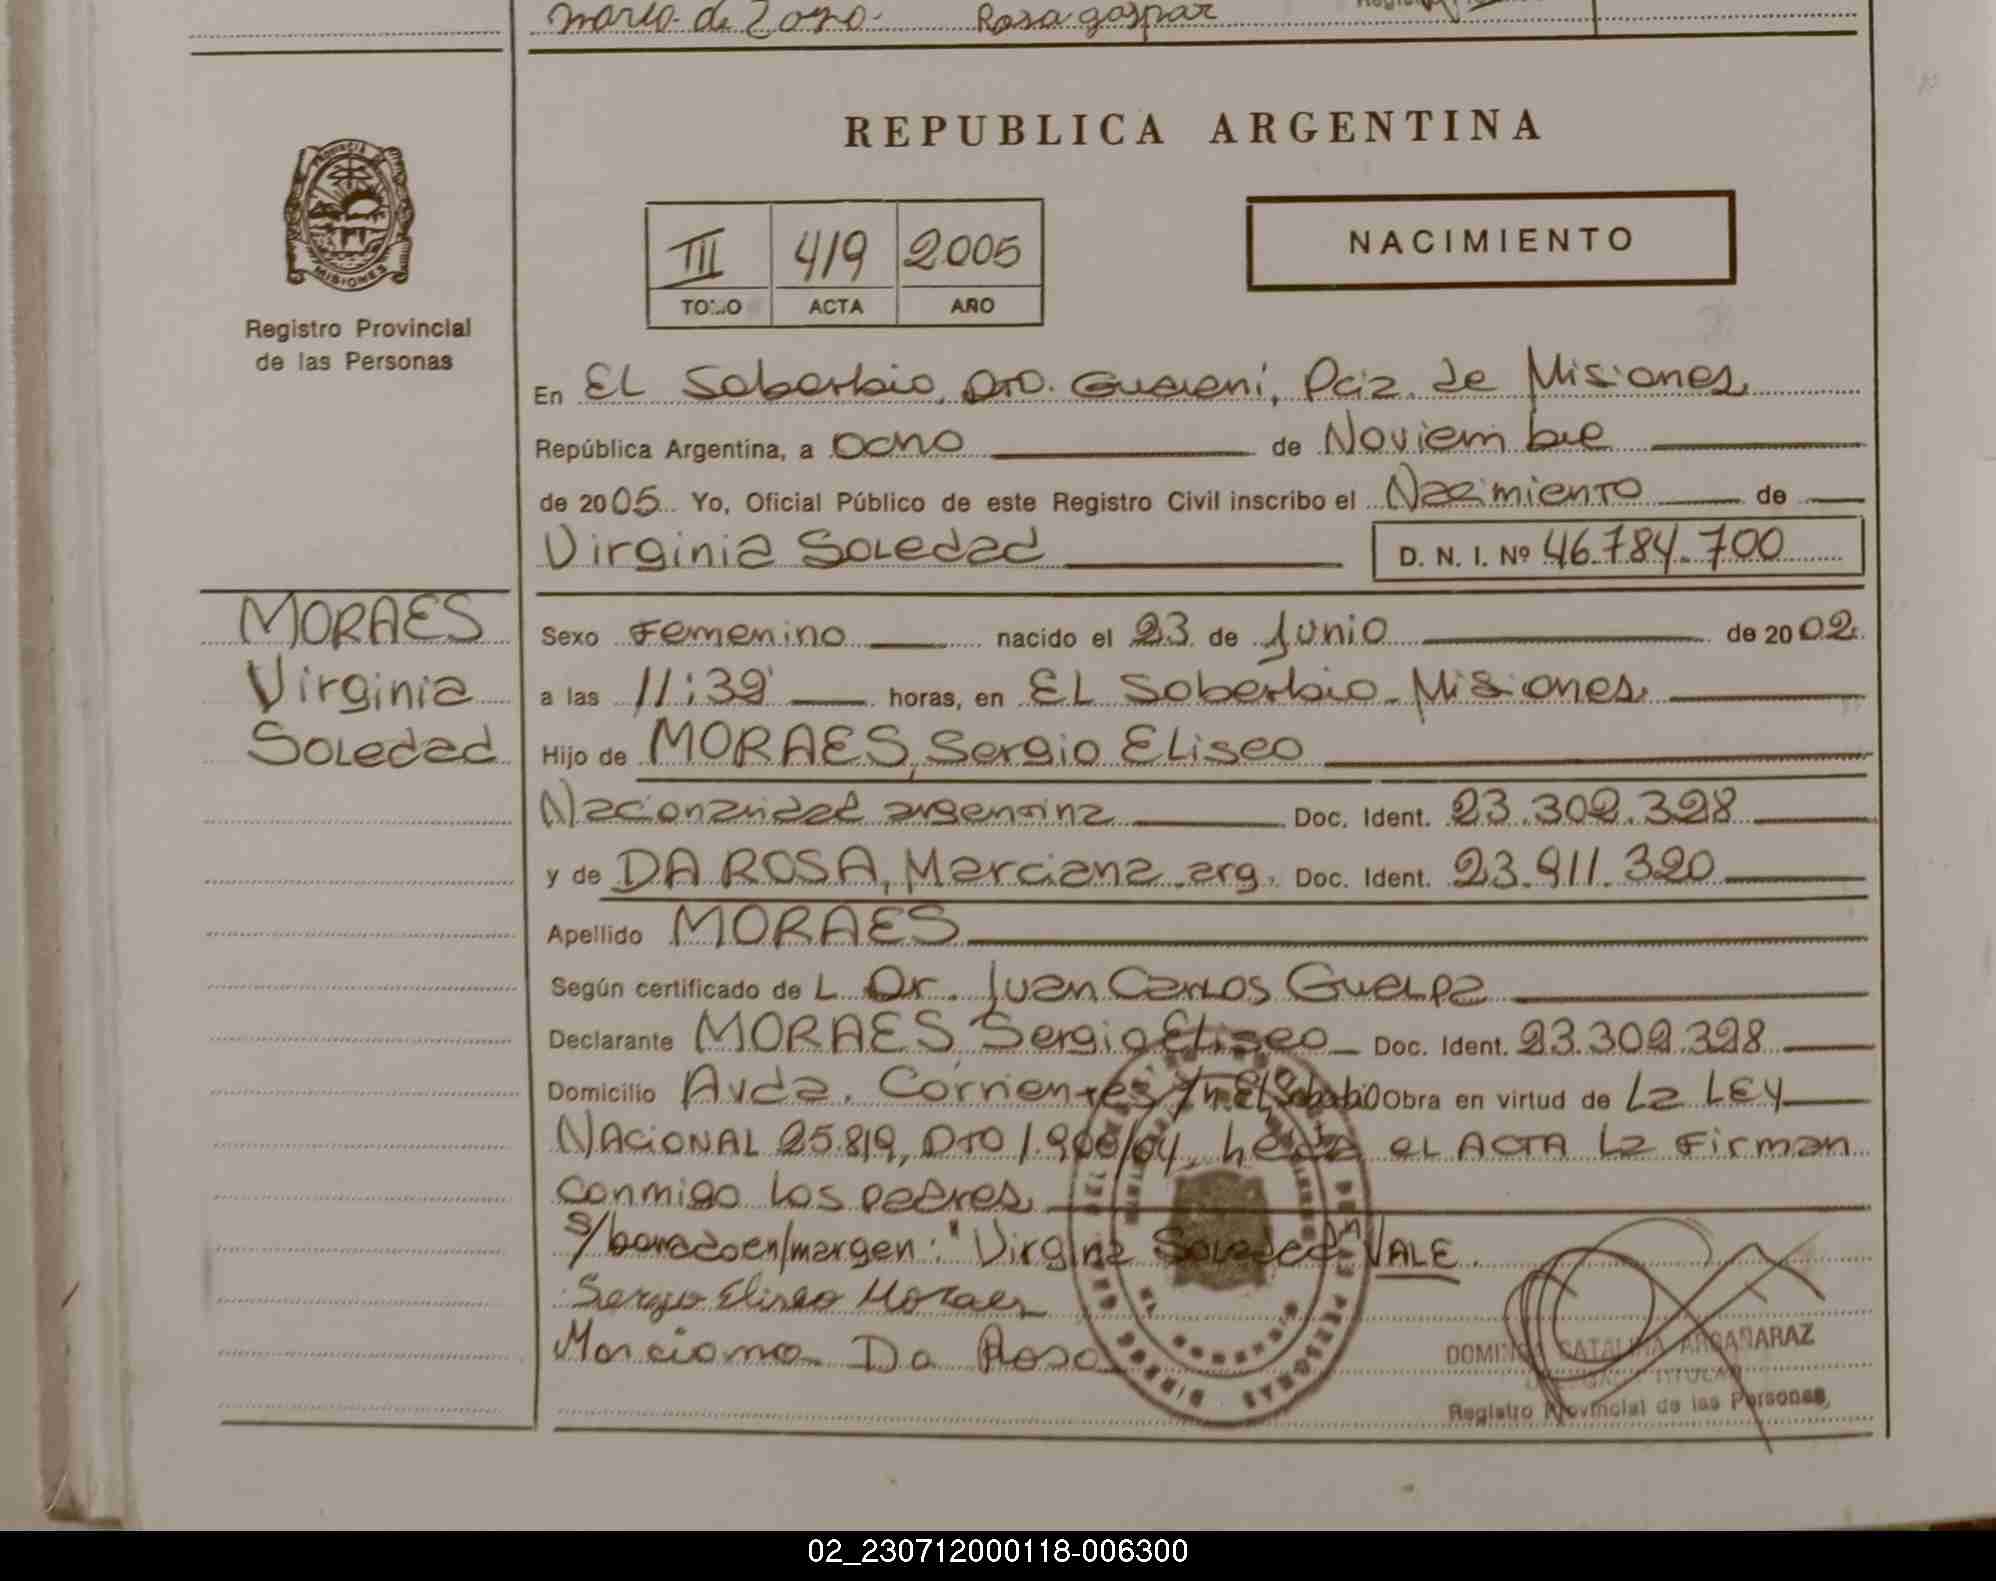 marzo de 2010. Rosa gaspar
PROVINCIA DE
MISIONES
Registro Provincial
de las Personas
REPUBLICA ARGENTINA
III 419 2005
TOMO ACTA AÑO
NACIMIENTO
En EL Soberbio, DTO. Guarani, Pcia. de Misiones
República Argentina, a OCHO de Noviembre
de 2005 Yo, Oficial Público de este Registro Civil inscribo el Nacimiento de
Virginia Soledad D. N. I. Nº 46.784.700
MORAES
Virginia
Soledad
Sexo Femenino nacido el 23 de Junio de 2002
a las 11:39' horas, en EL Soberbio - Misiones
Hijo de MORAES, Sergio Eliseo
Nacionalidad argentina Doc. Ident. 23.302.328
y de DA ROSA, Marciana - arg. Doc. Ident. 23.911.320
Apellido MORAES
Según certificado de L Dr. Juan Carlos Guelpa
Declarante MORAES, Sergio Eliseo Doc. Ident. 23.302.328
Domicilio Avda. Corrientes S/n. El Soberbio Obra en virtud de La LEY
NACIONAL 25.819, DTO 1.900/04, leida el ACTA la Firman
Conmigo los padres
s/borradoen/margen: "Virginia Soledad" VALE.
Sergio Eliseo Moraes
Marciana Da Rosa
ARGAÑARAZ
TITULAR
Registro Provincial de las Personas
02_230712000118-006300